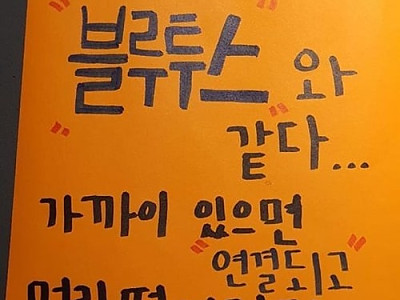 "블루투스"와
"같"다...
가까이 있으면
"연결되고"